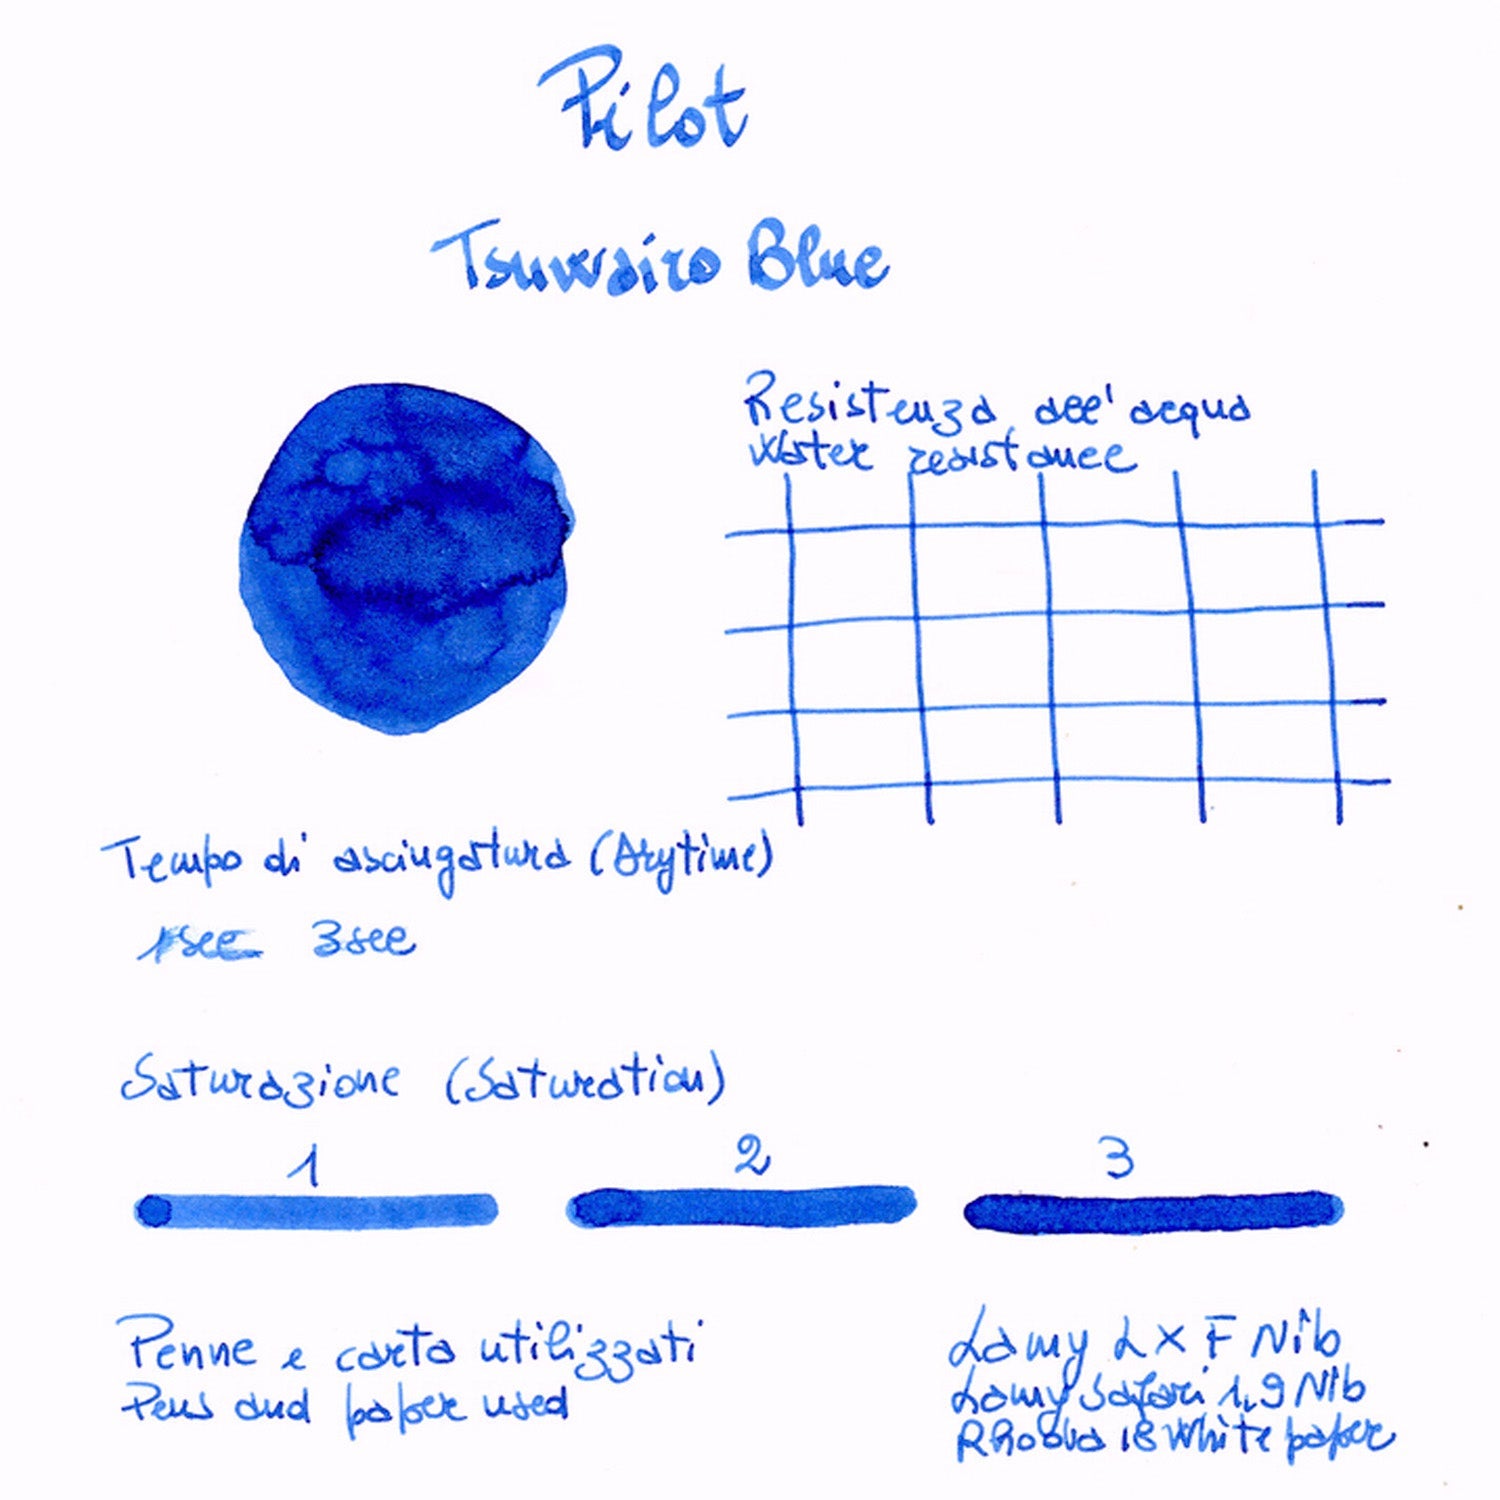 Pilot
Tsuwairo Blue
Resistenza all'acqua
Water resistance
Tempo di asciugatura (Drytime)
1sec 3sec
Saturazione (Saturation)
1 2 3
Penne e carta utilizzati
Pens and paper used
Lamy LX F Nib
Lamy Safari 1,9 Nib
Rhodia 18 White paper